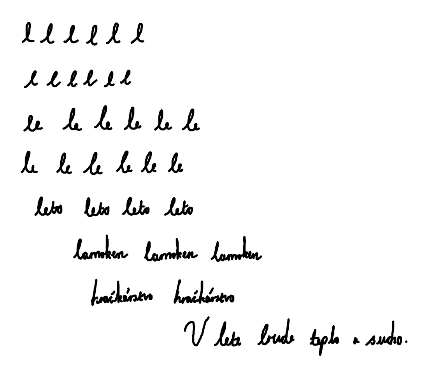 l l l l l l
l l l l l l
le le le le le le
le le le le le le
leto leto leto leto
lamoken lamoken lamoken
hračkárstvo hračkárstvo
V lete bude teplo a sucho.